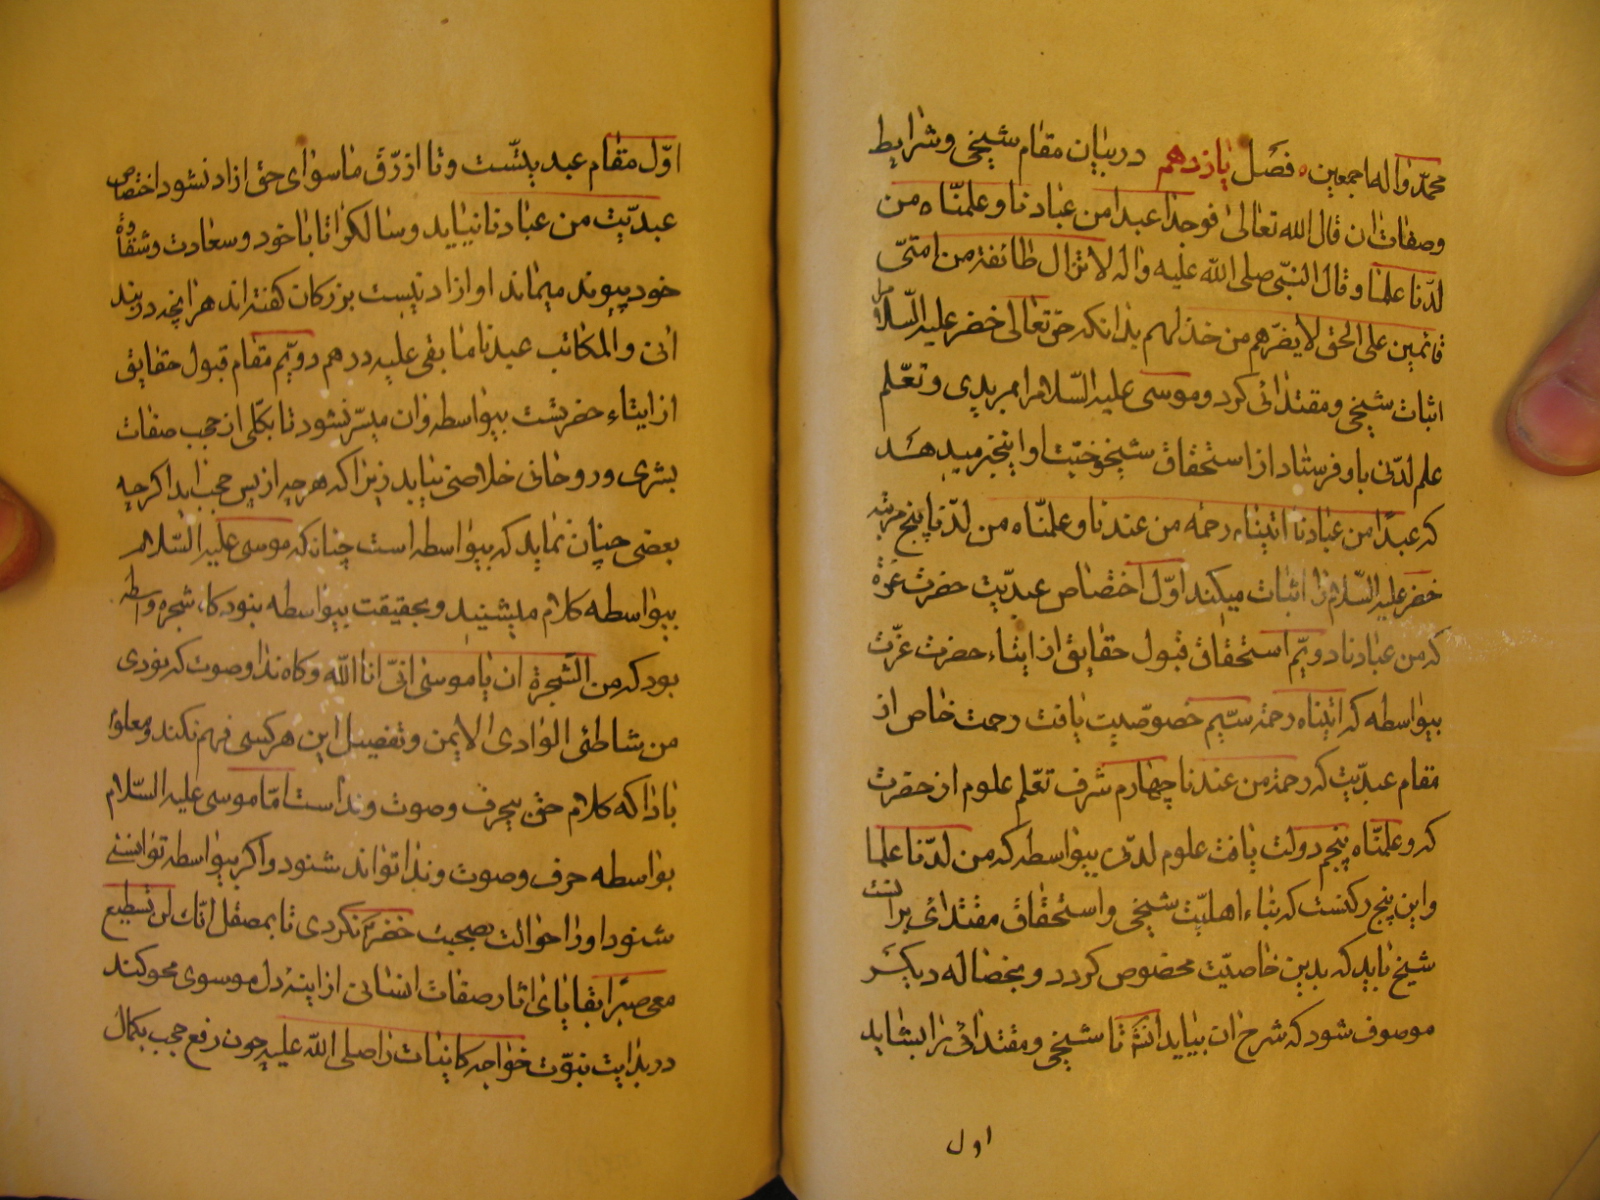 محمّد واله اجمعین ه فصل یازدهم در بیان مقام شیخی و شرایط
وصفات ان قال الله تعالی فوجدا عبدا من عبادنا وعلمنّاه من
لدّنا علما و قال النبّی صلی الله علیه واله لا تزال طائفة من امتّی
قائمین علی الحق لا یضرهم من خذلهم بدانکه حق تعالی خضر علیه السّلام را
اثبات شیخی و مقتدائی کرد و موسی علیه السّلام را بمریدی و تعّلم
علم لدّنی باو فرستاد از استحقاق شیخوخیّت او اینخبر میدهد
که عبدًا من عبادنا اتیناه رحمه من عندنا و علمنّاه من لدّنا پنج مرتبه
خضر علیه السّلام را اثبات میکند اوّل اختصاص عبدیّت حضرت عزة
که من عبادنا دویّم استحقاق قبول حقایق از ایتاء حضرت عزّت
بیواسطه که اتیناه رحمة سیّم خصوصیّت یافت رحمت خاص از
مقام عبدیّت که رحمة من عندنا چهارم شرف تعّلم علوم از حضرت
که وعلمنّاه پنجم دولت یافت علوم لدنی بیواسطه که من لدّنا علما
واین پنج رکنست که بناء اهلیّت شیخی و استحقاق مقتدائی برانست
شیخ باید که بدین خاصیّت مخصوص کردد و بخصاله دیکر
موصوف شود که شرح ان بیاید انشٓ تا شیخی و مقتدائی را بشاید
اول
اوّل مقام عبدیتّست و تا از رقّ ماسوای حق ازاد نشود اختصاص
عبدیّت من عبادنا نیابد و سالکرا تا با خود و سعادت و شقاوة
خود پیوند میماند او ازاد نیست بزرکان کفته اند هرانچه در بند
انی والمکاتب عبد ما بقی علیه درهم دویّم مقام قبول حقایق
از ایتاء حضرتست بیواسطه وان میسّر نشود تا بکلّی از حجب صفات
بشری و روحانی خلاصی نیابد زیرا که هرچه از پس حجب اید اکرچه
بعضی چنان نماید که بیواسطه است چنانکه موسی علیه السّلام
بیواسطه کلام میشنید و بحقیقت بیواسطه نبود کاه شجره واسطه
بود که من الشجرة ان یا موسی انّی انا الله و کاه ندا وصوت که نودی
من شاطئی الوادی الایمن و تفصیل این هرکسی فهم نکند و معلوم
بادا که کلام حق بیحرف وصوت و نداست امّا موسی علیه السّلام
بواسطه حرف وصوت وندا تواند شنود و اکر بیواسطه توانستی
شنود اورا حوالت بصحبت خضر نکردی تا بمصقل انّک لن تستطیع
معی صبرا بقایای اثار صفات انسانی از اینهٔ دل موسوی محو کند
در بدایت نبوّت خواجه کاینات را صلی الله علیه چون رفع حجب بکمال